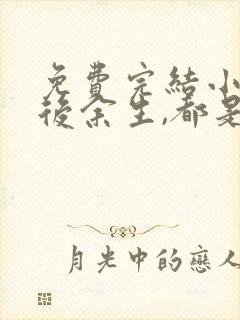 免費完結小
後余生,都是
月光中的戀人